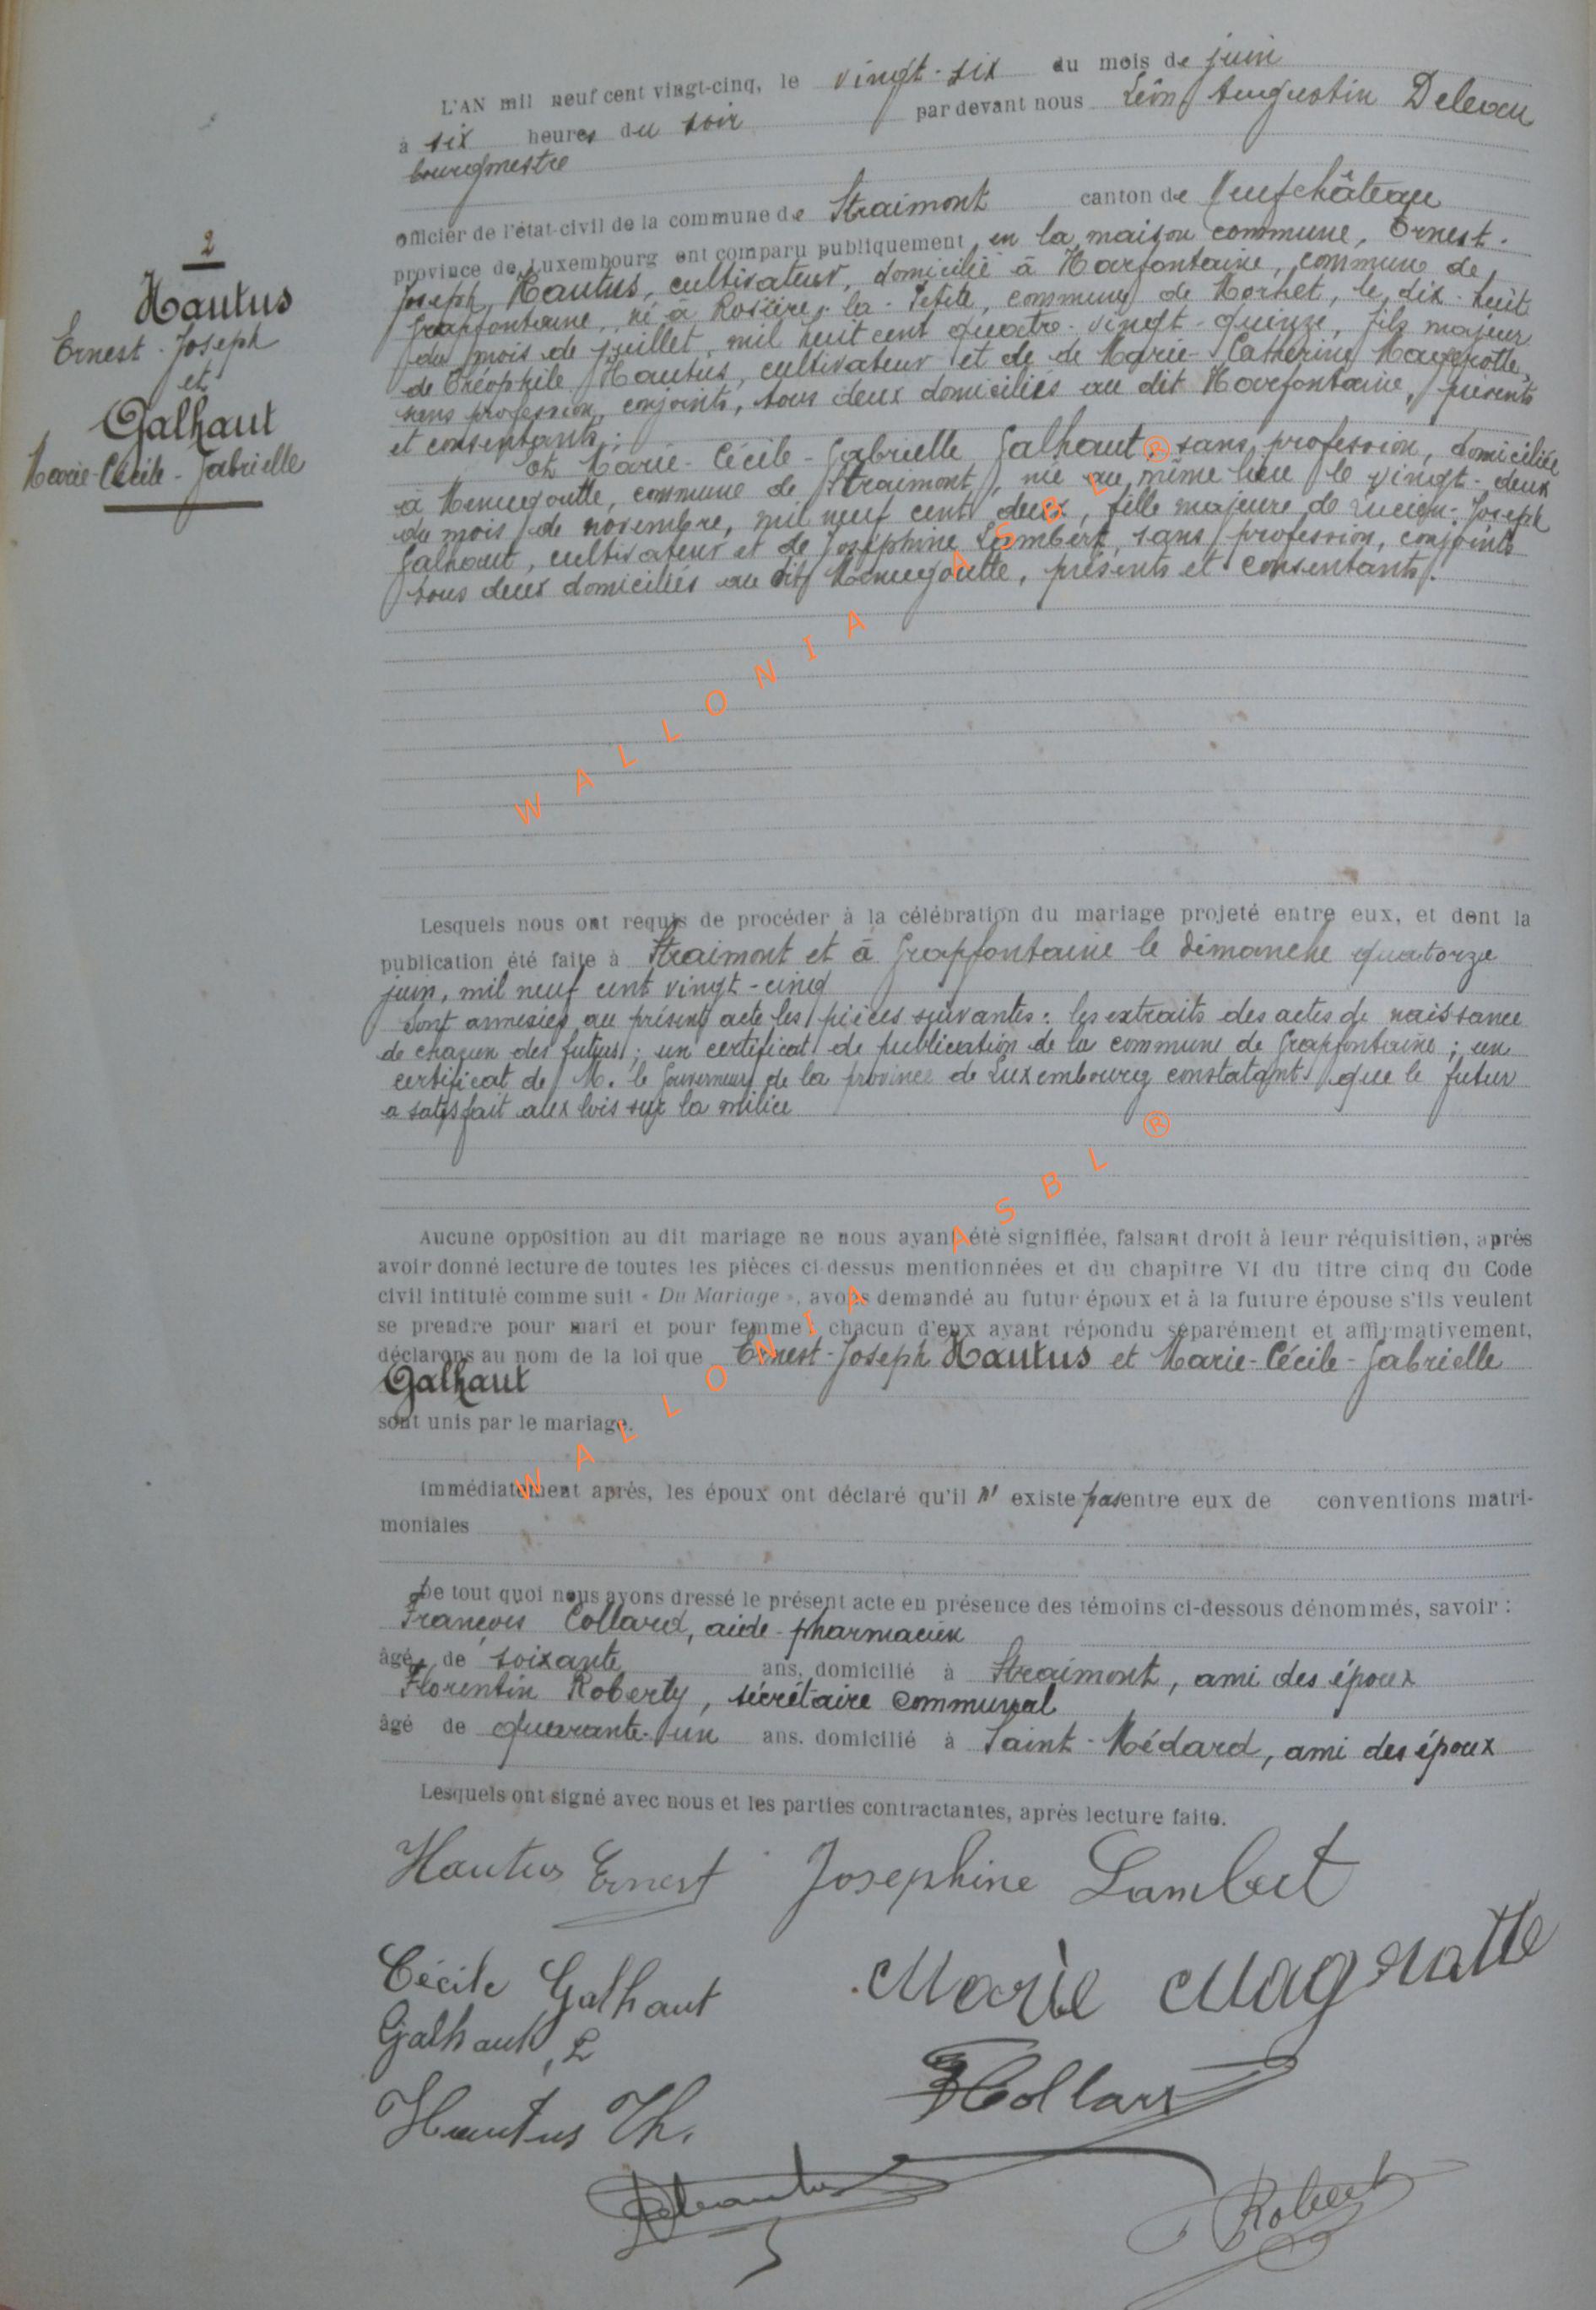 L'AN mil neuf cent vingt-cinq, le vingt-six du mois de juin
à six heures du soir par devant nous Léon Augustin
bourgmestre
officier de l'état-civil de la commune de Straimont canton de Neufchâteau
province de Luxembourg ont comparu publiquement, en la maison commune, Ernest-
Joseph Hautus, cultivateur, domicilié à Harfontaine, commune de
Grapfontaine, né à Rosière-la-Petite, commune de Hornet, le dix-huit
du mois de juillet, mil huit cent quatre-vingt-quinze, fils majeur
de Théophile Hautus, cultivateur et de de Marie-Catherine
sans profession, conjoints, tous deux domiciliés au dit Harfontaine, présents
et consentants;
2
Hautus
Ernest-Joseph
et
Galhaut
Marie-Cécile-Gabrielle
et Marie-Cécile-Gabrielle Galhaut, sans profession, domiciliée
à Menugoutte, commune de Straimont, née au même lieu le vingt-deux
du mois de novembre, mil neuf cent deux, fille majeure de Lucien-Joseph
Galhaut, cultivateur et de Joséphine Lambert, sans profession, conjoints
tous deux domiciliés au dit Menugoutte, présents et consentants.
WALLONIA ASBL ®
Lesquels nous ont requis de procéder à la célébration du mariage projeté entre eux, et dont la
publication été faite à Straimont et à Grapfontaine le dimanche quatorze
juin, mil neuf cent vingt-cinq
Sont annexées au présent acte les pièces suivantes: les extraits des actes de naissance
de chacun des futurs; un certificat de publication de la commune de Grapfontaine; un
certificat de M. le Gouverneur de la province de Luxembourg constatant que le futur
a satisfait aux lois sur la milice
Aucune opposition au dit mariage ne nous ayant été signifiée, faisant droit à leur réquisition, après
avoir donné lecture de toutes les pièces ci dessus mentionnées et du chapitre VI du titre cinq du Code
civil intitulé comme suit « Du Mariage », avons demandé au futur époux et à la future épouse s'ils veulent
se prendre pour mari et pour femme, chacun d'eux ayant répondu séparément et affirmativement,
déclarons au nom de la loi que Ernest-Joseph Hautus et Marie-Cécile-Gabrielle
Galhaut
sont unis par le mariage.
WALLONIA ASBL ®
Immédiatement après, les époux ont déclaré qu'il n' existe pas entre eux de conventions matri-
moniales
De tout quoi nous avons dressé le présent acte en présence des témoins ci-dessous dénommés, savoir :
François Collard, aide-pharmacien
âgé de soixante ans, domicilié à Straimont, ami des époux
Florentin Roberty, sécrétaire communal
âgé de quarante-un ans. domicilié à Saint-Médard, ami des époux
Lesquels ont signé avec nous et les parties contractantes, après lecture faite.
Hautus Ernest Josephine Lambert
Cécile Galhaut Marie Magnotte
Galhaut, L
Hautus Th. Collard